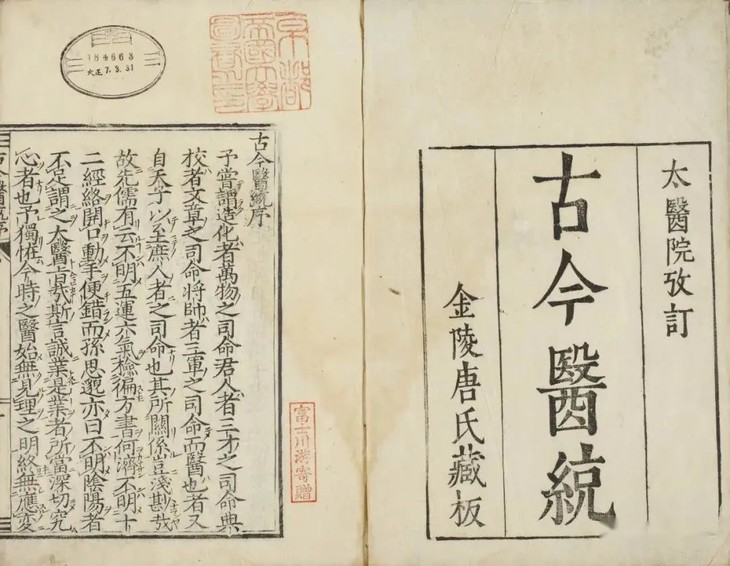 太醫院攷訂
古今醫統
金陵唐氏藏板
京都
帝國大學
圖書之印
184663
大正7.3.31
富士川游寄贈
古今醫統序
予嘗謂造化者萬物之司命君人者三才之司命典
校者文章之司命將帥者三軍之司命而醫也者又
自天子以至庶人者之司命也其所關係豈淺尠哉
故先儒有云不明五運六氣檢徧方書何濟不明十
二經絡開口動手便錯而孫思邈亦曰不明陰陽者
不足謂之大醫旨哉斯言誠業是業者所當深切究
心者也予獨恠今時之醫始無見理之明終無應變
古今醫統序